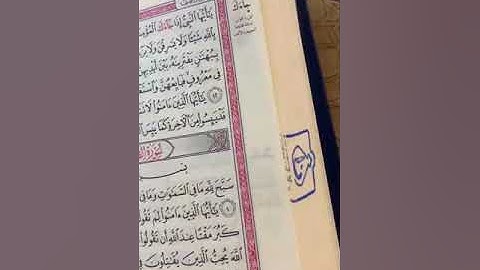 جَآءَكَ
يَٰٓأَيُّهَا ٱلنَّبِيُّ إِذَا جَآءَكَ ٱلْمُؤْمِ
بِٱللَّهِ شَيْـًٔا وَلَا يَسْرِقْنَ وَلَا يَزْ
بِبُهْتَٰنٍ يَفْتَرِينَهُۥ بَيْنَ أَيْدِيهِنَّ
فِى مَعْرُوفٍ فَبَايِعْهُنَّ وَٱسْتَغْ
١٢ يَٰٓأَيُّهَا ٱلَّذِينَ ءَامَنُوا۟ لَا تَ
قَدْ يَئِسُوا۟ مِنَ ٱلْءَاخِرَةِ كَمَا يَئِسَ
سُورَةُ
بِسْ
سَبَّحَ لِلَّهِ مَا فِى ٱلسَّمَٰوَٰتِ وَمَا فِى
١ يَٰٓأَيُّهَا ٱلَّذِينَ ءَامَنُوا۟ لِمَ تَقُو
كَبُرَ مَقْتًا عِندَ ٱللَّهِ أَن تَقُولُوا۟
ٱللَّهَ يُحِبُّ ٱلَّذِينَ يُقَٰتِلُونَ فِى